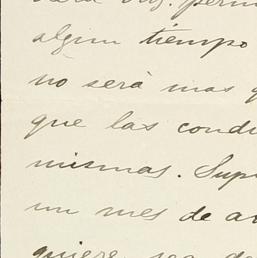 algun tiempo
no será mas q
que las condi
mismas. Sup
un mes de a
quiere